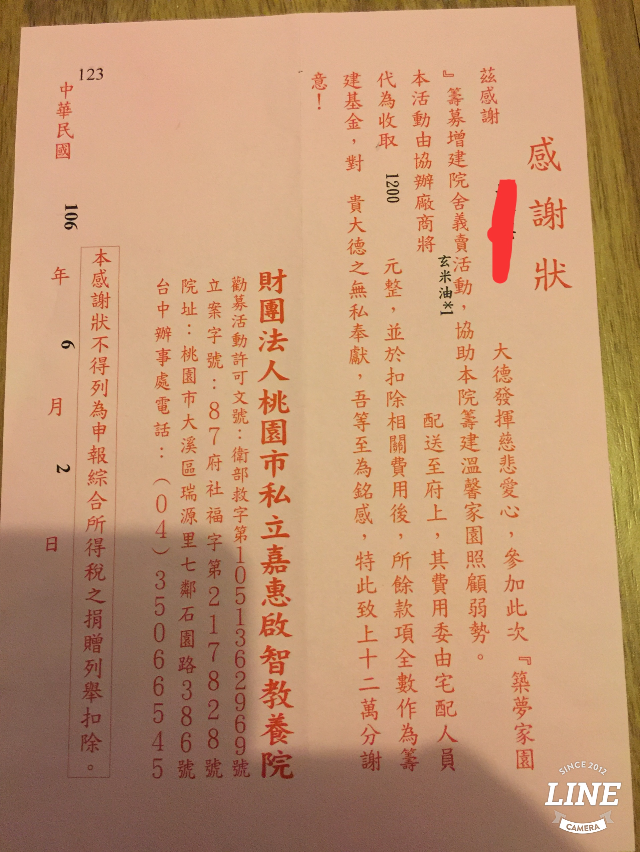 感謝狀
茲感謝 大德發揮慈悲愛心，參加此次『築夢家園
』籌募增建院舍義賣活動，協助本院籌建溫馨家園照顧弱勢。
本活動由協辦廠商將 玄米油*1 配送至府上，其費用委由宅配人員
代為收取 1200 元整，並於扣除相關費用後，所餘款項全數作為籌
建基金，對 貴大德之無私奉獻，吾等至為銘感，特此致上十二萬分謝
意！
財團法人桃園市私立嘉惠啟智教養院
勸募活動許可文號：衛部救字第1051362969號
立案字號：87府社福字第217828號
院址：桃園市大溪區瑞源里七鄰石園路386號
台中辦事處電話：（04）35066545
本感謝狀不得列為申報綜合所得稅之捐贈列舉扣除。
123
中華民國 106 年 6 月 2 日
SINCE 2012
LINE
CAMERA